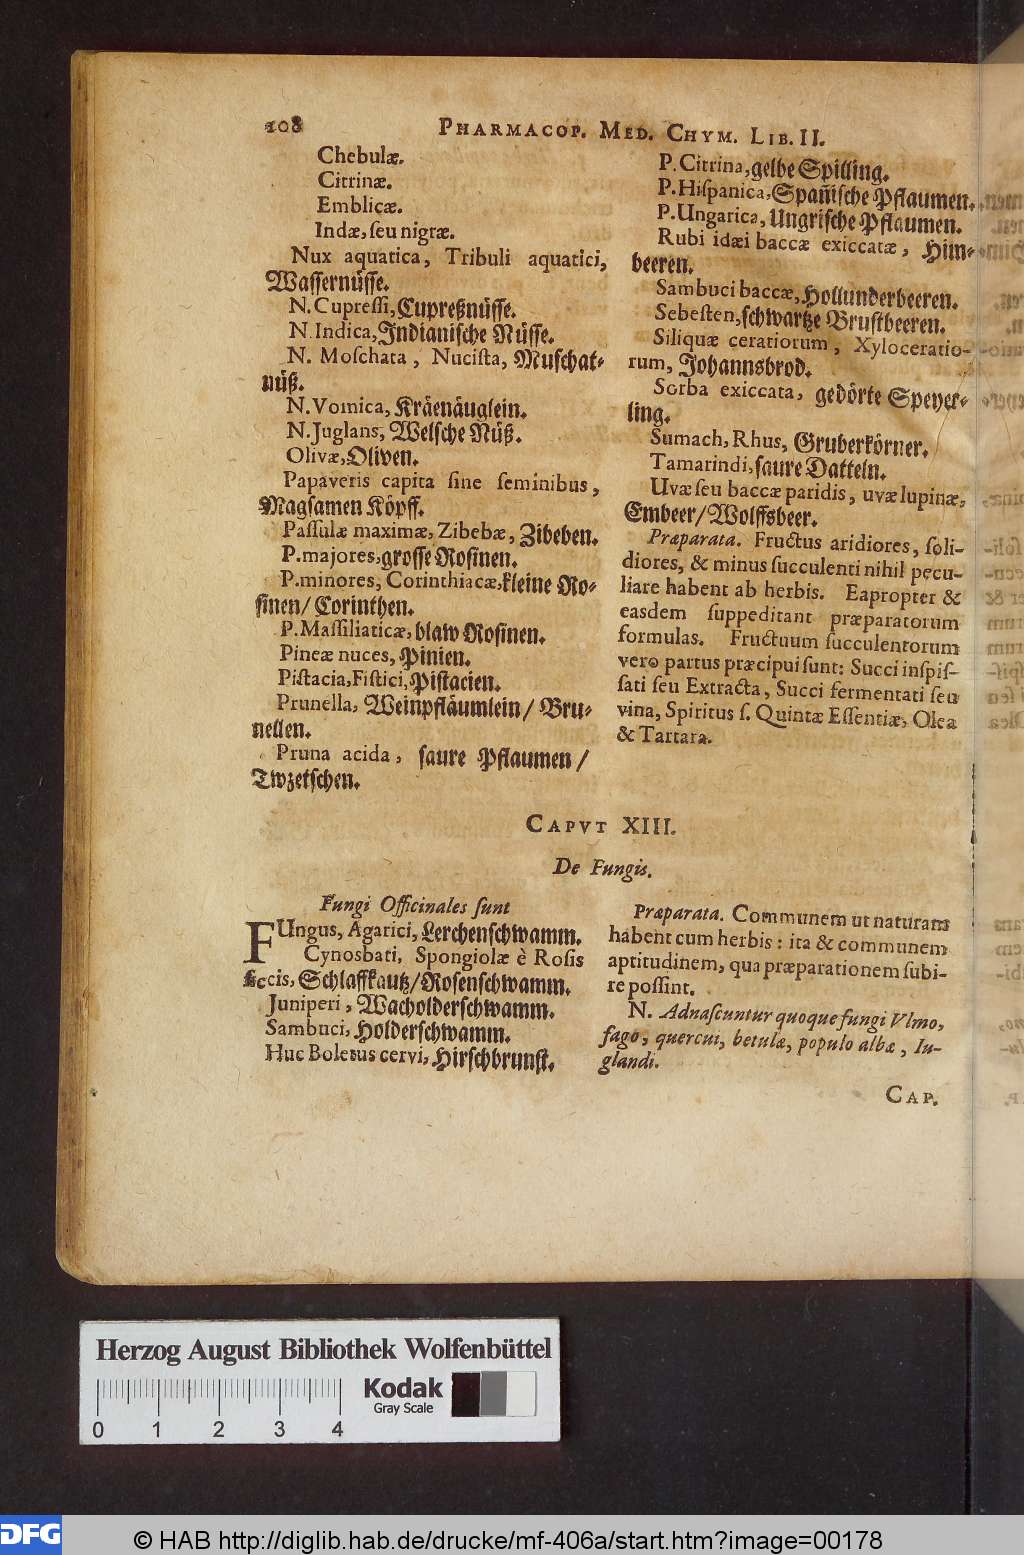 108
PHARMACOP. MED. CHYM. LIB. II.
Chebulæ.
Citrinæ.
Emblicæ.
Indæ, ſeu nigræ.
Nux aquatica, Tribuli aquatici,
Waſſernüſſe.
N. Cupreſſi, Cupreßnüſſe.
N. Indica, Indianiſche Nüſſe.
N. Moſchata, Nuciſta, Muſchat-
nüß.
N. Vomica, Kräenäuglein.
N. Juglans, Welſche Nüß.
Olivæ, Oliven.
Papaveris capita ſine ſeminibus,
Magſamen Köpff.
Paſſulæ maximæ, Zibebæ, Zibeben.
P. majores, groſſe Roſinen.
P. minores, Corinthiacæ, kleine Ro-
ſinen/ Corinthen.
P. Maſſiliaticæ, blaw Roſinen.
Pineæ nuces, Pinien.
Piſtacia, Fiſtici, Piſtacien.
Prunella, Weinpfläumlein/ Bru-
nellen.
Pruna acida, ſaure Pflaumen/
Twzetſchen.
P. Citrina, gelbe Spilling.
P. Hiſpanica, Spañiſche Pflaumen.
P. Ungarica, Ungriſche Pflaumen.
Rubi idæi baccæ exiccatæ, Him-
beeren.
Sambuci baccæ, Hollunderbeeren.
Sebeſten, ſchwartze Bruſtbeeren.
Siliquæ ceratiorum, Xyloceratio-
rum, Johannsbrod.
Sorba exiccata, gedörte Speyer-
ling.
Sumach, Rhus, Gruberkörner.
Tamarindi, ſaure Datteln.
Uvæ ſeu baccæ paridis, uvæ lupinæ,
Embeer/ Wolffsbeer.
Præparata. Fructus aridiores, ſoli-
diores, & minus ſucculenti nihil pecu-
liare habent ab herbis. Eapropter &
easdem ſuppeditant præparatorum
formulas. Fructuum ſucculentorum
vero partus præcipui ſunt: Succi inſpiſ-
ſati ſeu Extracta, Succi fermentati ſeu
vina, Spiritus ſ. Quintæ Eſſentiæ, Olea
& Tartara.
CAPVT XIII.
De Fungis.
Fungi Officinales ſunt
FUngus, Agarici, Lerchenſchwamm.
Cynosbati, Spongiolæ è Roſis
ſecis, Schlaffkautz/ Roſenſchwamm.
Juniperi, Wacholderſchwamm.
Sambuci, Holderſchwamm.
Huc Boletus cervi, Hirſchbrunſt.
Præparata. Communem ut naturam
habent cum herbis: ita & communem
aptitudinem, qua præparationem ſubi-
re poſſint.
N. Adnaſcuntur quoque fungi Ulmo,
fago, quercui, betulæ, populo albæ, Iu-
glandi.
CAP.
Herzog August Bibliothek Wolfenbüttel
Kodak
Gray Scale
0 1 2 3 4
DFG
© HAB http://diglib.hab.de/drucke/mf-406a/start.htm?image=00178